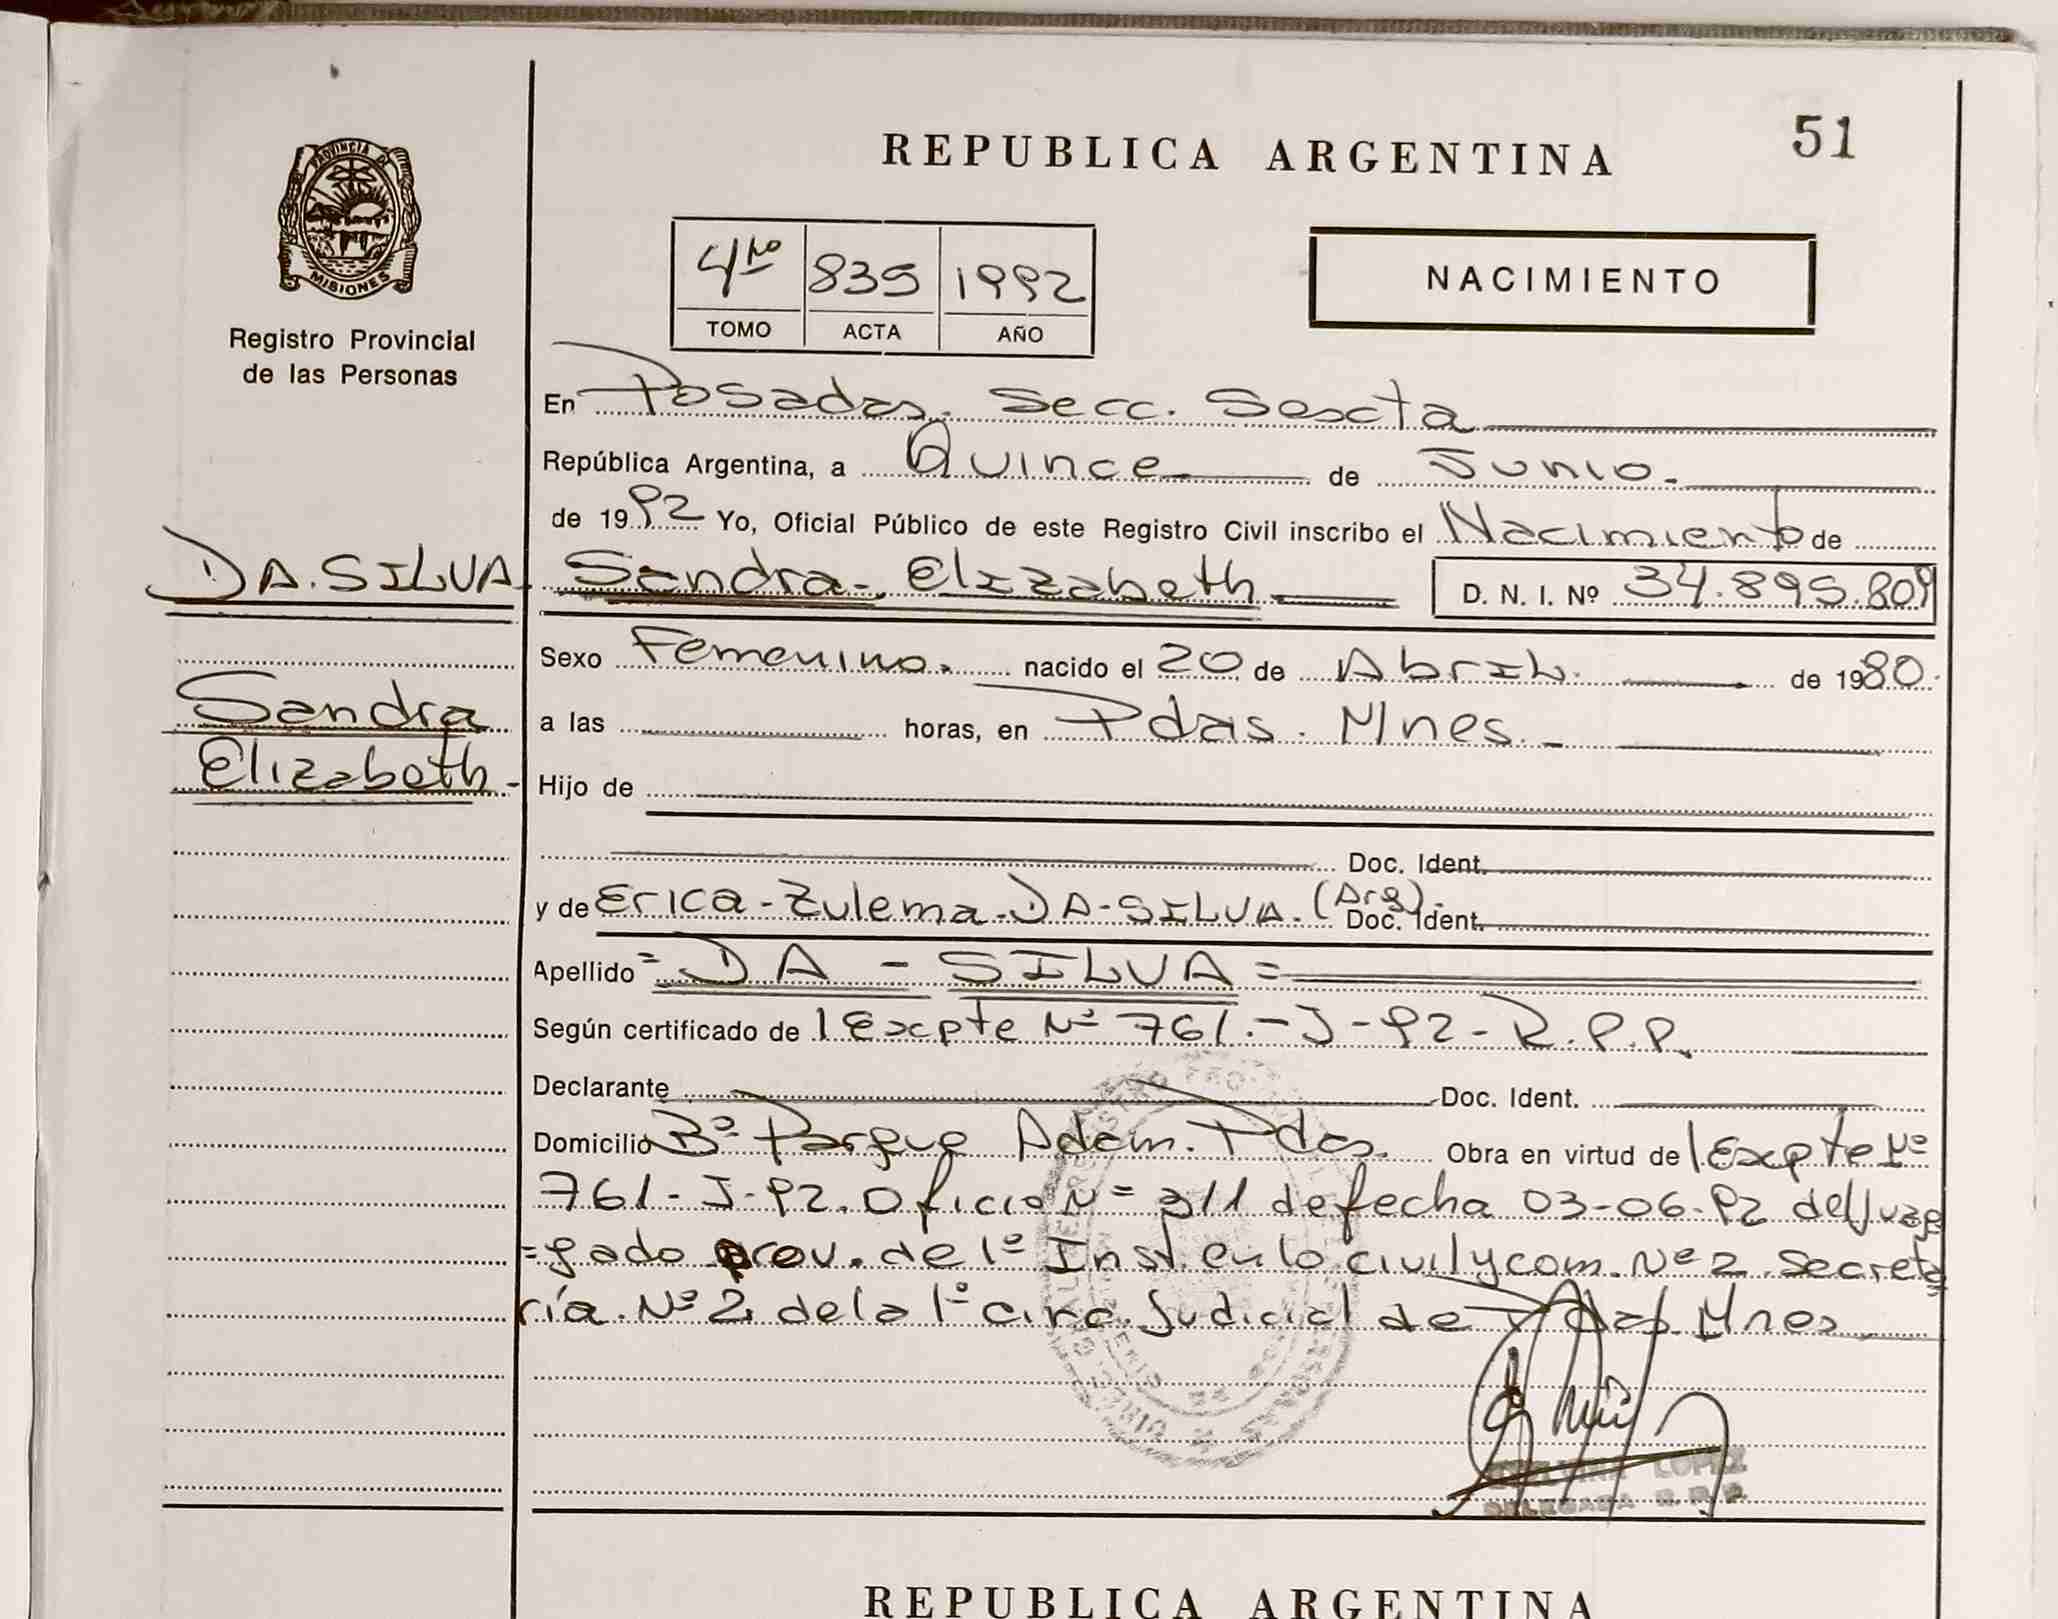 REPUBLICA ARGENTINA 51
PROVINCIA DE
MISIONES
Registro Provincial
de las Personas
4to 835 1992
TOMO ACTA AÑO
NACIMIENTO
En Posadas. Secc. Sexta
República Argentina, a Quince de Junio.
de 1992 Yo, Oficial Público de este Registro Civil inscribo el Nacimiento de
DA.SILVA. Sandra. Elizabeth D. N. I. Nº 34.895.809
Sexo Femenino. nacido el 20 de Abril. de 1980.
Sandra
a las horas, en Pdas. Mnes.
Elizabeth.
Hijo de
Doc. Ident.
y de Erica-Zulema-DA-SILVA. (Arg). Doc. Ident.
Apellido = DA - SILVA =
Según certificado de Expte Nº 761.-J-92-R.P.P.
Declarante Doc. Ident.
Domicilio Bº Parque Adam. Pdas. Obra en virtud de Expte Nº
761-J-92. Oficio Nº 311 de fecha 03-06-92 del Juz
=gado prov. de 1º Inst. en lo civil y com. Nº 2. Secreta
ría. Nº 2. de la 1º circ. Judicial de Pdas. Mnes
LOPEZ
DELEGADA R. P. P.
REPUBLICA ARGENTINA